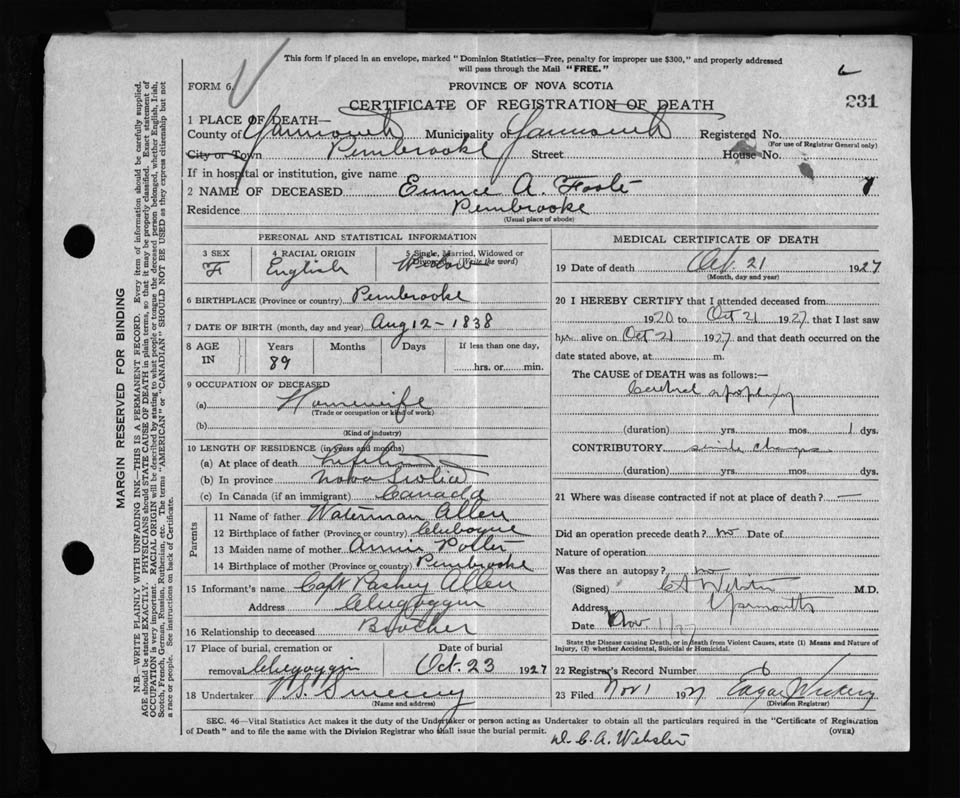 This form if placed in an envelope, marked "Dominion Statistics—Free, penalty for improper use $300," and properly addressed
will pass through the Mail "FREE."
6
FORM 6.
PROVINCE OF NOVA SCOTIA
CERTIFICATE OF REGISTRATION OF DEATH
231
1 PLACE OF DEATH—
County of Yarmouth Municipality of Yarmouth Registered No.
(For use of Registrar General only)
City or Town Pembrooke Street House No.
If in hospital or institution, give name
2 NAME OF DECEASED Eunice A. Foote
Residence Pembrooke
(Usual place of abode)
PERSONAL AND STATISTICAL INFORMATION
3 SEX 4 RACIAL ORIGIN 5 Single, Married, Widowed or Divorced (Write the word)
F English Widow
6 BIRTHPLACE (Province or country) Pembrooke
7 DATE OF BIRTH (month, day and year) Aug 12-1838
8 AGE IN Years Months Days If less than one day,
89 hrs. or min.
9 OCCUPATION OF DECEASED
(a) Homewife
(Trade or occupation or kind of work)
(b)
(Kind of industry)
10 LENGTH OF RESIDENCE (in years and months)
(a) At place of death
(b) In province Nova Scotia
(c) In Canada (if an immigrant) Canada
Parents
11 Name of father Waterman Allen
12 Birthplace of father (Province or country)
13 Maiden name of mother Annie Potter
14 Birthplace of mother (Province or country) Pembrooke
15 Informant's name Capt Allen
Address Chegoggin
16 Relationship to deceased Brother
17 Place of burial, cremation or Date of burial
removal Chegoggin Oct. 23 1927
18 Undertaker Sweeny
(Name and address)
MEDICAL CERTIFICATE OF DEATH
19 Date of death Oct 21 1927
(Month, day and year)
20 I HEREBY CERTIFY that I attended deceased from
1920 to Oct 21 1927 that I last saw
her alive on Oct 21 1927 and that death occurred on the
date stated above, at m.
The CAUSE of DEATH was as follows:—
Cerebral apoplexy
(duration) yrs. mos. 1 dys.
CONTRIBUTORY senile changes
(duration) yrs. mos. dys.
21 Where was disease contracted if not at place of death? —
Did an operation precede death? no Date of
Nature of operation
Was there an autopsy? no
(Signed) C A Webster M.D.
Address Yarmouth
Date Nov 1/27
State the Disease causing Death, or in death from Violent Causes, state (1) Means and Nature of
Injury, (2) whether Accidental, Suicidal or Homicidal.
22 Registrar's Record Number 6
23 Filed Nov 1 1927 Edgar
(Division Registrar)
SEC. 46—Vital Statistics Act makes it the duty of the Undertaker or person acting as Undertaker to obtain all the particulars required in the "Certificate of Registration
of Death" and to file the same with the Division Registrar who shall issue the burial permit.
(OVER)
D. C. A. Webster
MARGIN RESERVED FOR BINDING
N.B.—WRITE PLAINLY WITH UNFADING INK—THIS IS A PERMANENT RECORD. Every item of information should be carefully supplied.
AGE should be stated EXACTLY. PHYSICIANS should STATE CAUSE OF DEATH in plain terms, so that it may be properly classified. Exact statement of
OCCUPATION is very important. RACIAL ORIGIN will be described by stating to what people or tongue the deceased person belonged, whether English, Irish,
Scotch, French, German, Russian, Ruthenian, etc. The terms "AMERICAN" or "CANADIAN" SHOULD NOT BE USED as they express citizenship but not
a race or people. See instructions on back of Certificate.